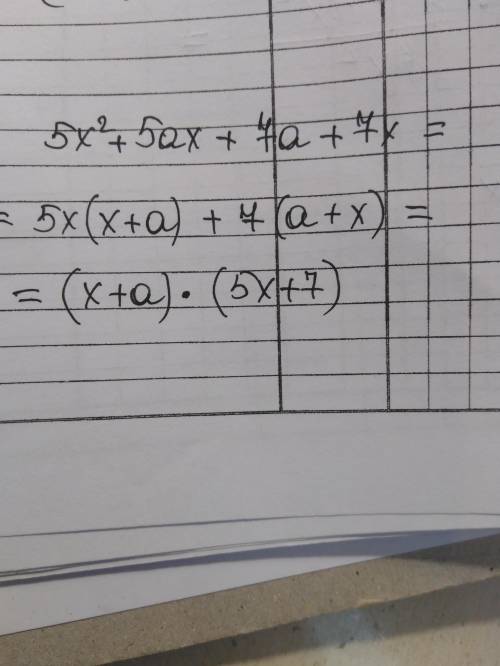 5x² + 5ax + 7a + 7x =
= 5x(x+a) + 7(a+x) =
= (x+a)·(5x+7)